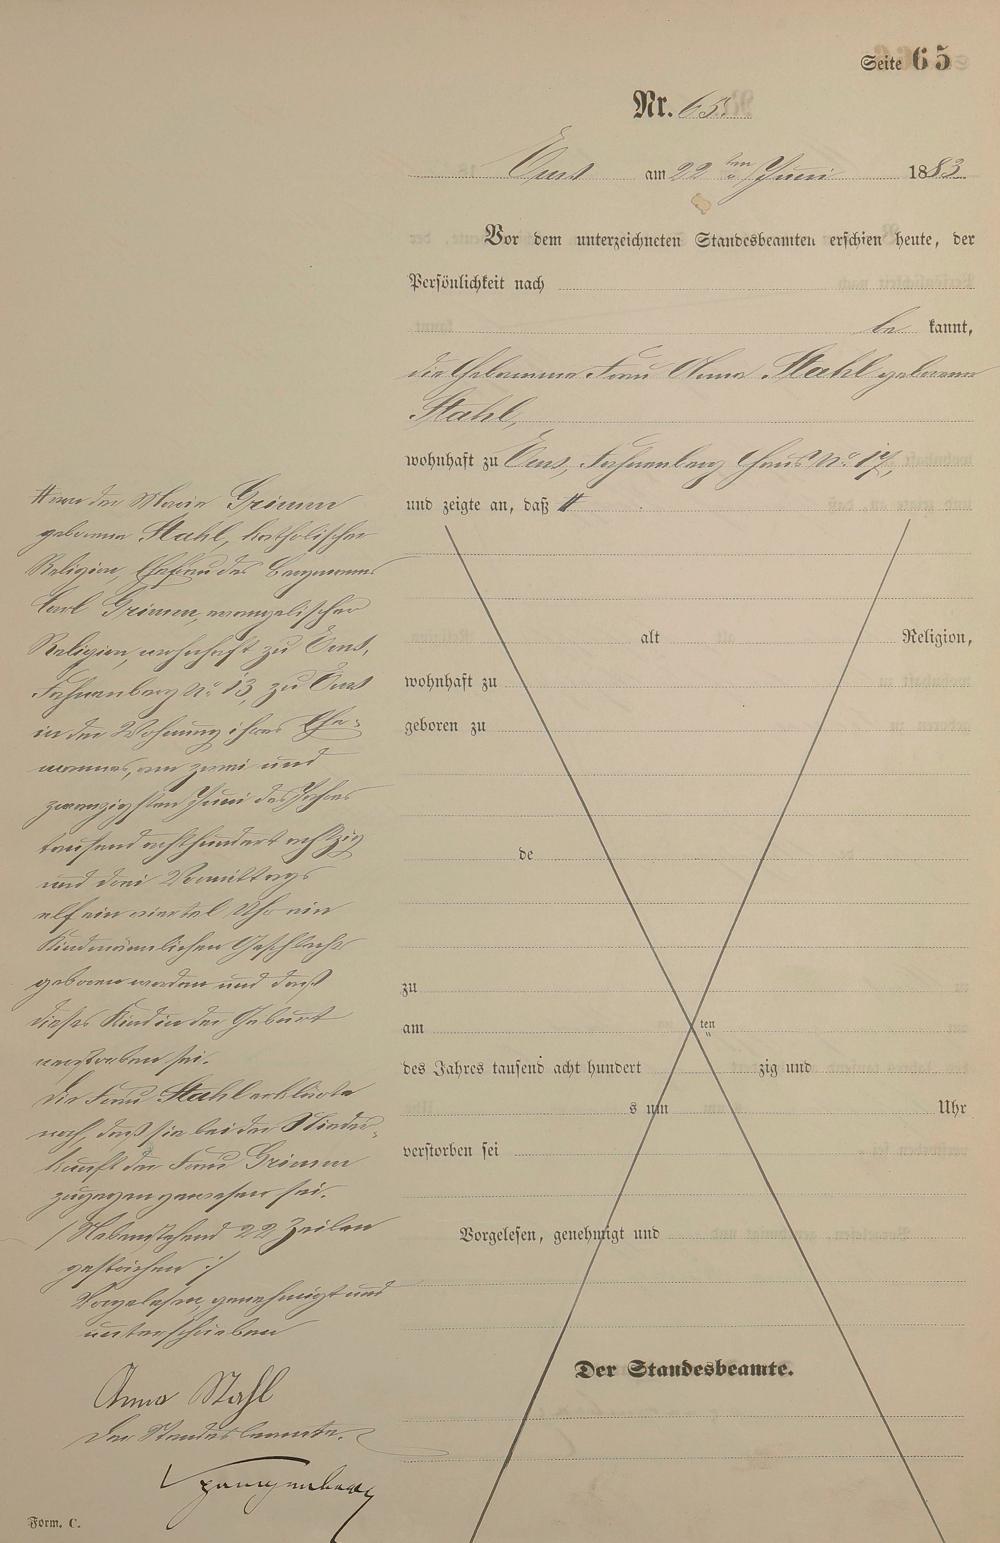 Seite 65
Nr. 65.
Ems am 22ten Juni 1883
Vor dem unterzeichneten Standesbeamten erschien heute, der
Persönlichkeit nach
be kannt,
die Hebamme Frau Anna Stahl geborene
Stahl,
wohnhaft zu Ems, Fahnenberg Haus No 17,
und zeigte an, daß #
# von der Marie Grimm
geborene Stahl, katholischer
Religion, Ehefrau des Bergmanns
Carl Grimm, evangelischer
Religion, wohnhaft zu Ems,
Fahnenberg No 13, zu Ems
in der Wohnung ihres Ehe-
mannes, am zwei und
zwanzigsten Juni des Jahres
tausend achthundert achtzig
und drei Vormittags
elf ein viertel Uhr ein
Kind männlichen Geschlechts
geboren worden und daß
dieses Kind in der Geburt
verstorben sei.
Die Frau Stahl erklärte
noch, daß sie bei der Nieder-
kunft der Frau Grimm
zugegen gewesen sei.
/ Nebenstehend 22 Zeilen
gestrichen :/
Vorgelesen, genehmigt und
unterschrieben
Anna Stahl
Der Standesbeamte.
alt Religion,
wohnhaft zu
geboren zu
de
zu
am ten
des Jahres tausend acht hundert zig und
s um Uhr
verstorben sei
Vorgelesen, genehmigt und
Der Standesbeamte.
Form. C.